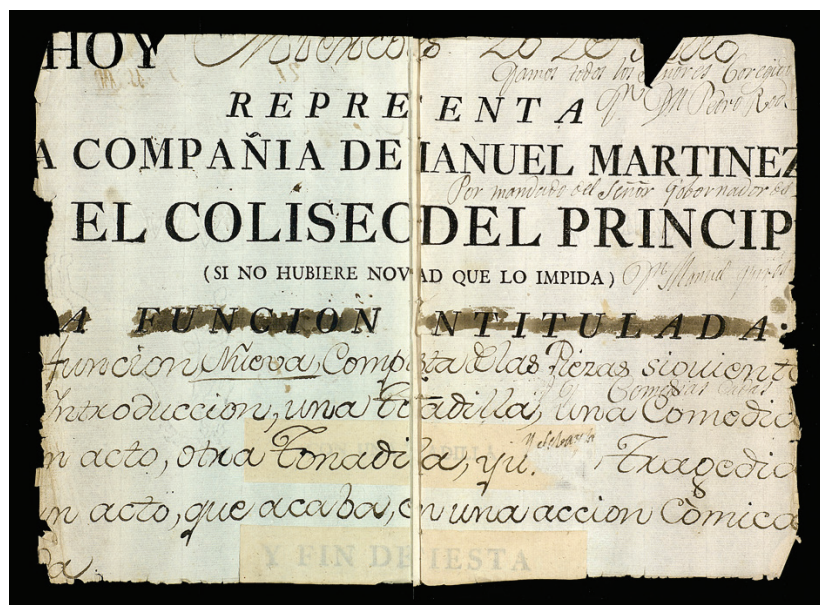 HOY Miercoles 20 de
REPRE ENTA
A COMPAÑIA DE MANUEL MARTINEZ
Por mandado del Señor Gobernador
EL COLISEO DEL PRINCIP
(SI NO HUBIERE NOV AD QUE LO IMPIDA)
A FUNCION NTITULADA:
funcion Nueva, Comp ta de las Piezas siguiente
Introduccion, una tonadilla, una Comedia
n acto, otra Tonadilla, y Tragedia
n acto, que acaba, en una accion Cómica
da
Y FIN DE IESTA